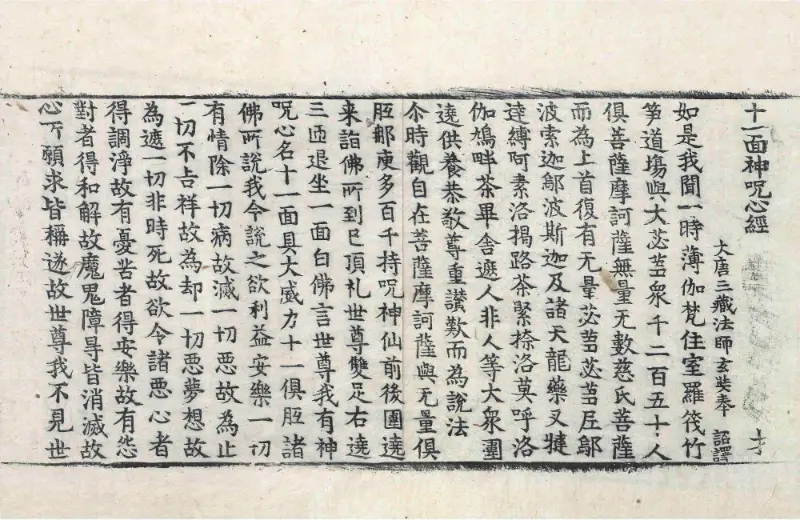 十一面神呪心經
大唐三藏法師玄奘奉 詔譯 才
如是我聞一時薄伽梵住室羅筏竹
笋道場與大苾芻衆千二百五十人
俱菩薩摩訶薩無量无數慈氏菩薩
而為上首復有无量苾芻苾芻尼鄔
波索迦鄔波斯迦及諸天龍藥叉揵
達縛阿素洛揭路茶緊捺洛莫呼洛
伽鳩畔茶畢舍遮人非人等大衆圍
遶供養恭敬尊重讚歎而為說法
尒時觀自在菩薩摩訶薩與无量俱
胝那庾多百千持呪神仙前後圍遶
来詣佛所到已頂礼世尊雙足右遶
三迊退坐一面白佛言世尊我有神
呪心名十一面具大威力十一俱胝諸
佛所說我今說之欲利益安樂一切
有情除一切病故滅一切惡故為止
一切不吉祥故為却一切惡夢想故
為遮一切非時死故欲令諸惡心者
得調淨故有憂苦者得安樂故有怨
對者得和解故魔鬼障㝵皆消滅故
心所願求皆稱遂故世尊我不見世